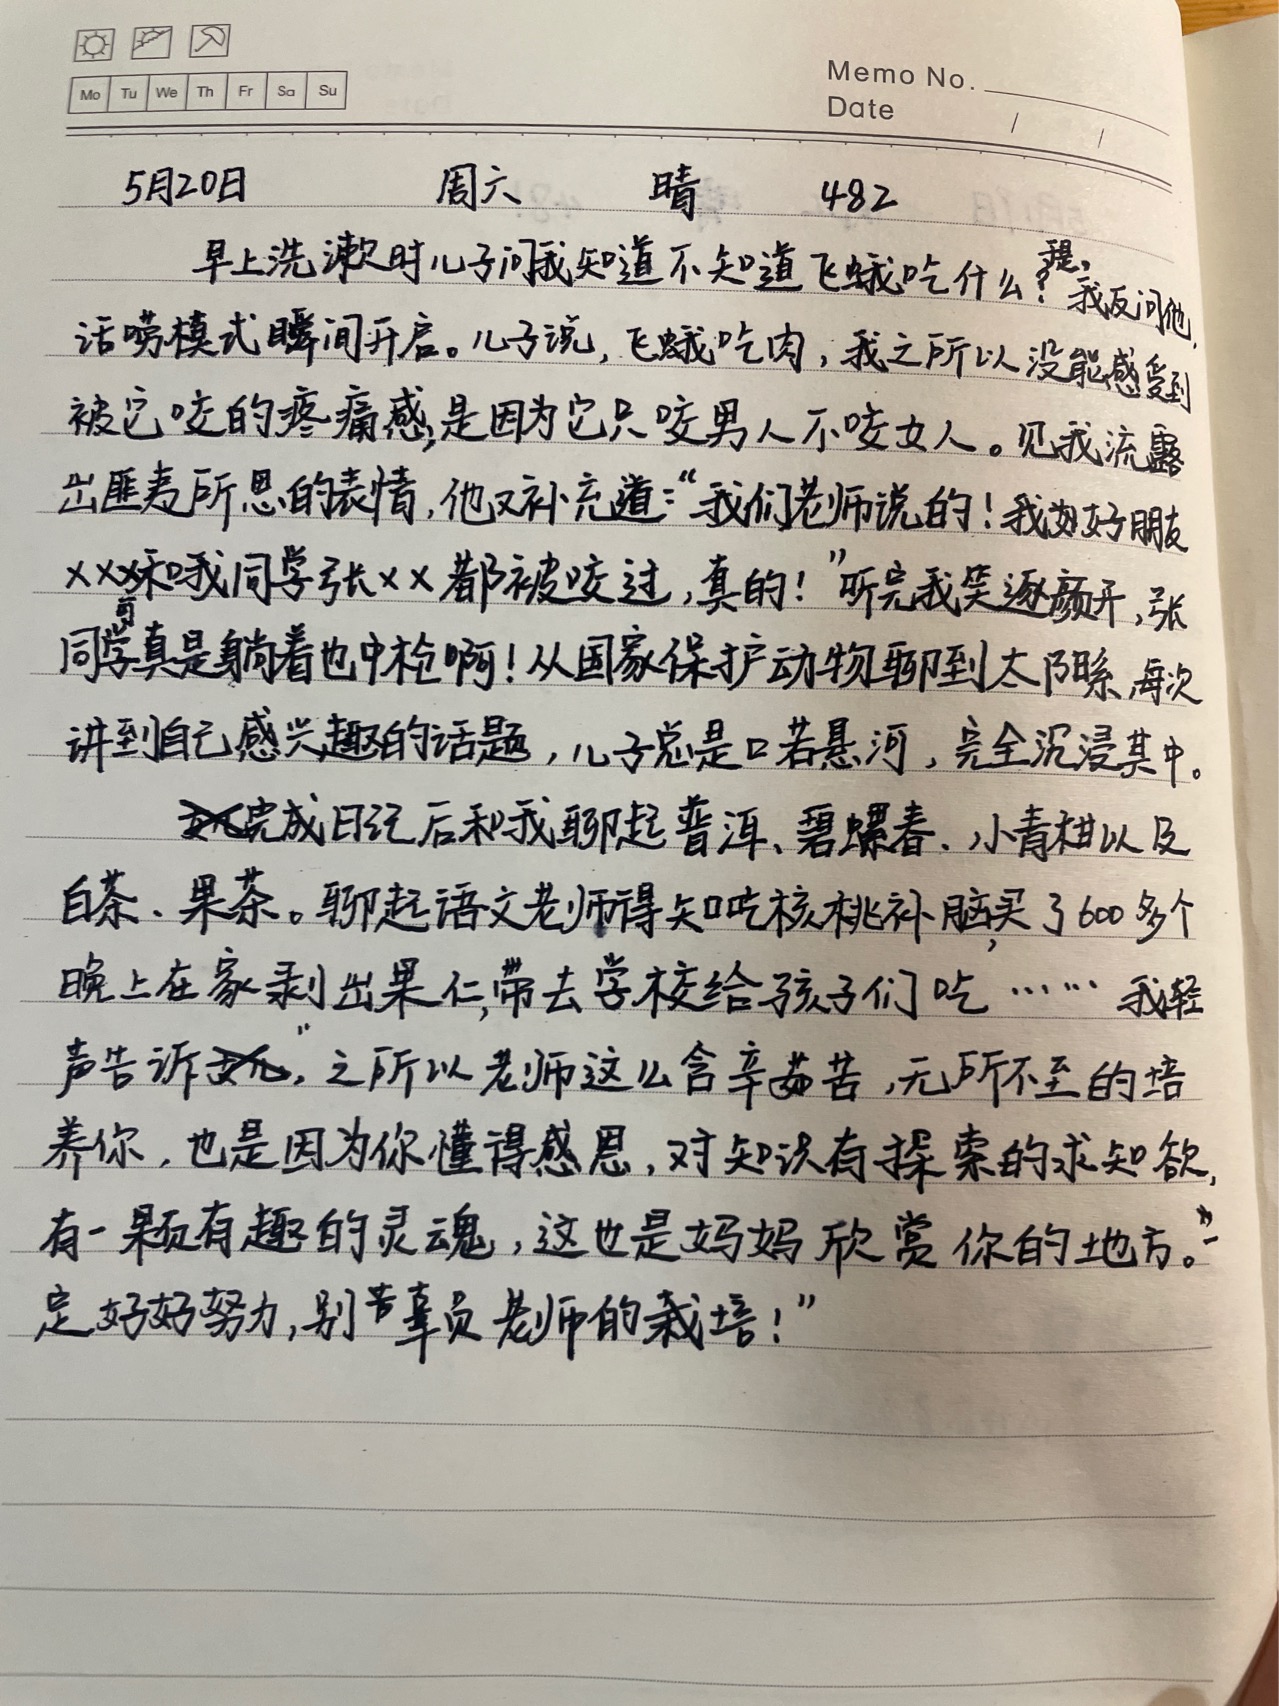 Mo Tu We Th Fr Sa Su
Memo No.
Date / /
5月20日 周六 晴 482
早上洗漱时儿子问我知道不知道飞蛾吃什么？我反问他,
话唠模式瞬间开启。儿子说,飞蛾吃肉,我之所以没能感受到
被它咬的疼痛感,是因为它只咬男人不咬女人。见我流露
出匪夷所思的表情,他又补充道:“我们老师说的!我好朋友
×××和我同学张××都被咬过,真的!”听完我笑逐颜开,张
同学可真是躺着也中枪啊!从国家保护动物聊到太阳系,每次
讲到自己感兴趣的话题,儿子总是口若悬河,完全沉浸其中。
完成日记后和我聊起普洱、碧螺春、小青柑以及
白茶、果茶。聊起语文老师得知吃核桃补脑,买了600多个
晚上在家剥出果仁,带去学校给孩子们吃……我轻
声告诉,“之所以老师这么含辛茹苦,无所不至的培
养你,也是因为你懂得感恩,对知识有探索的求知欲,
有一颗有趣的灵魂,这也是妈妈欣赏你的地方。一
定好好努力,别辜负老师的栽培!”